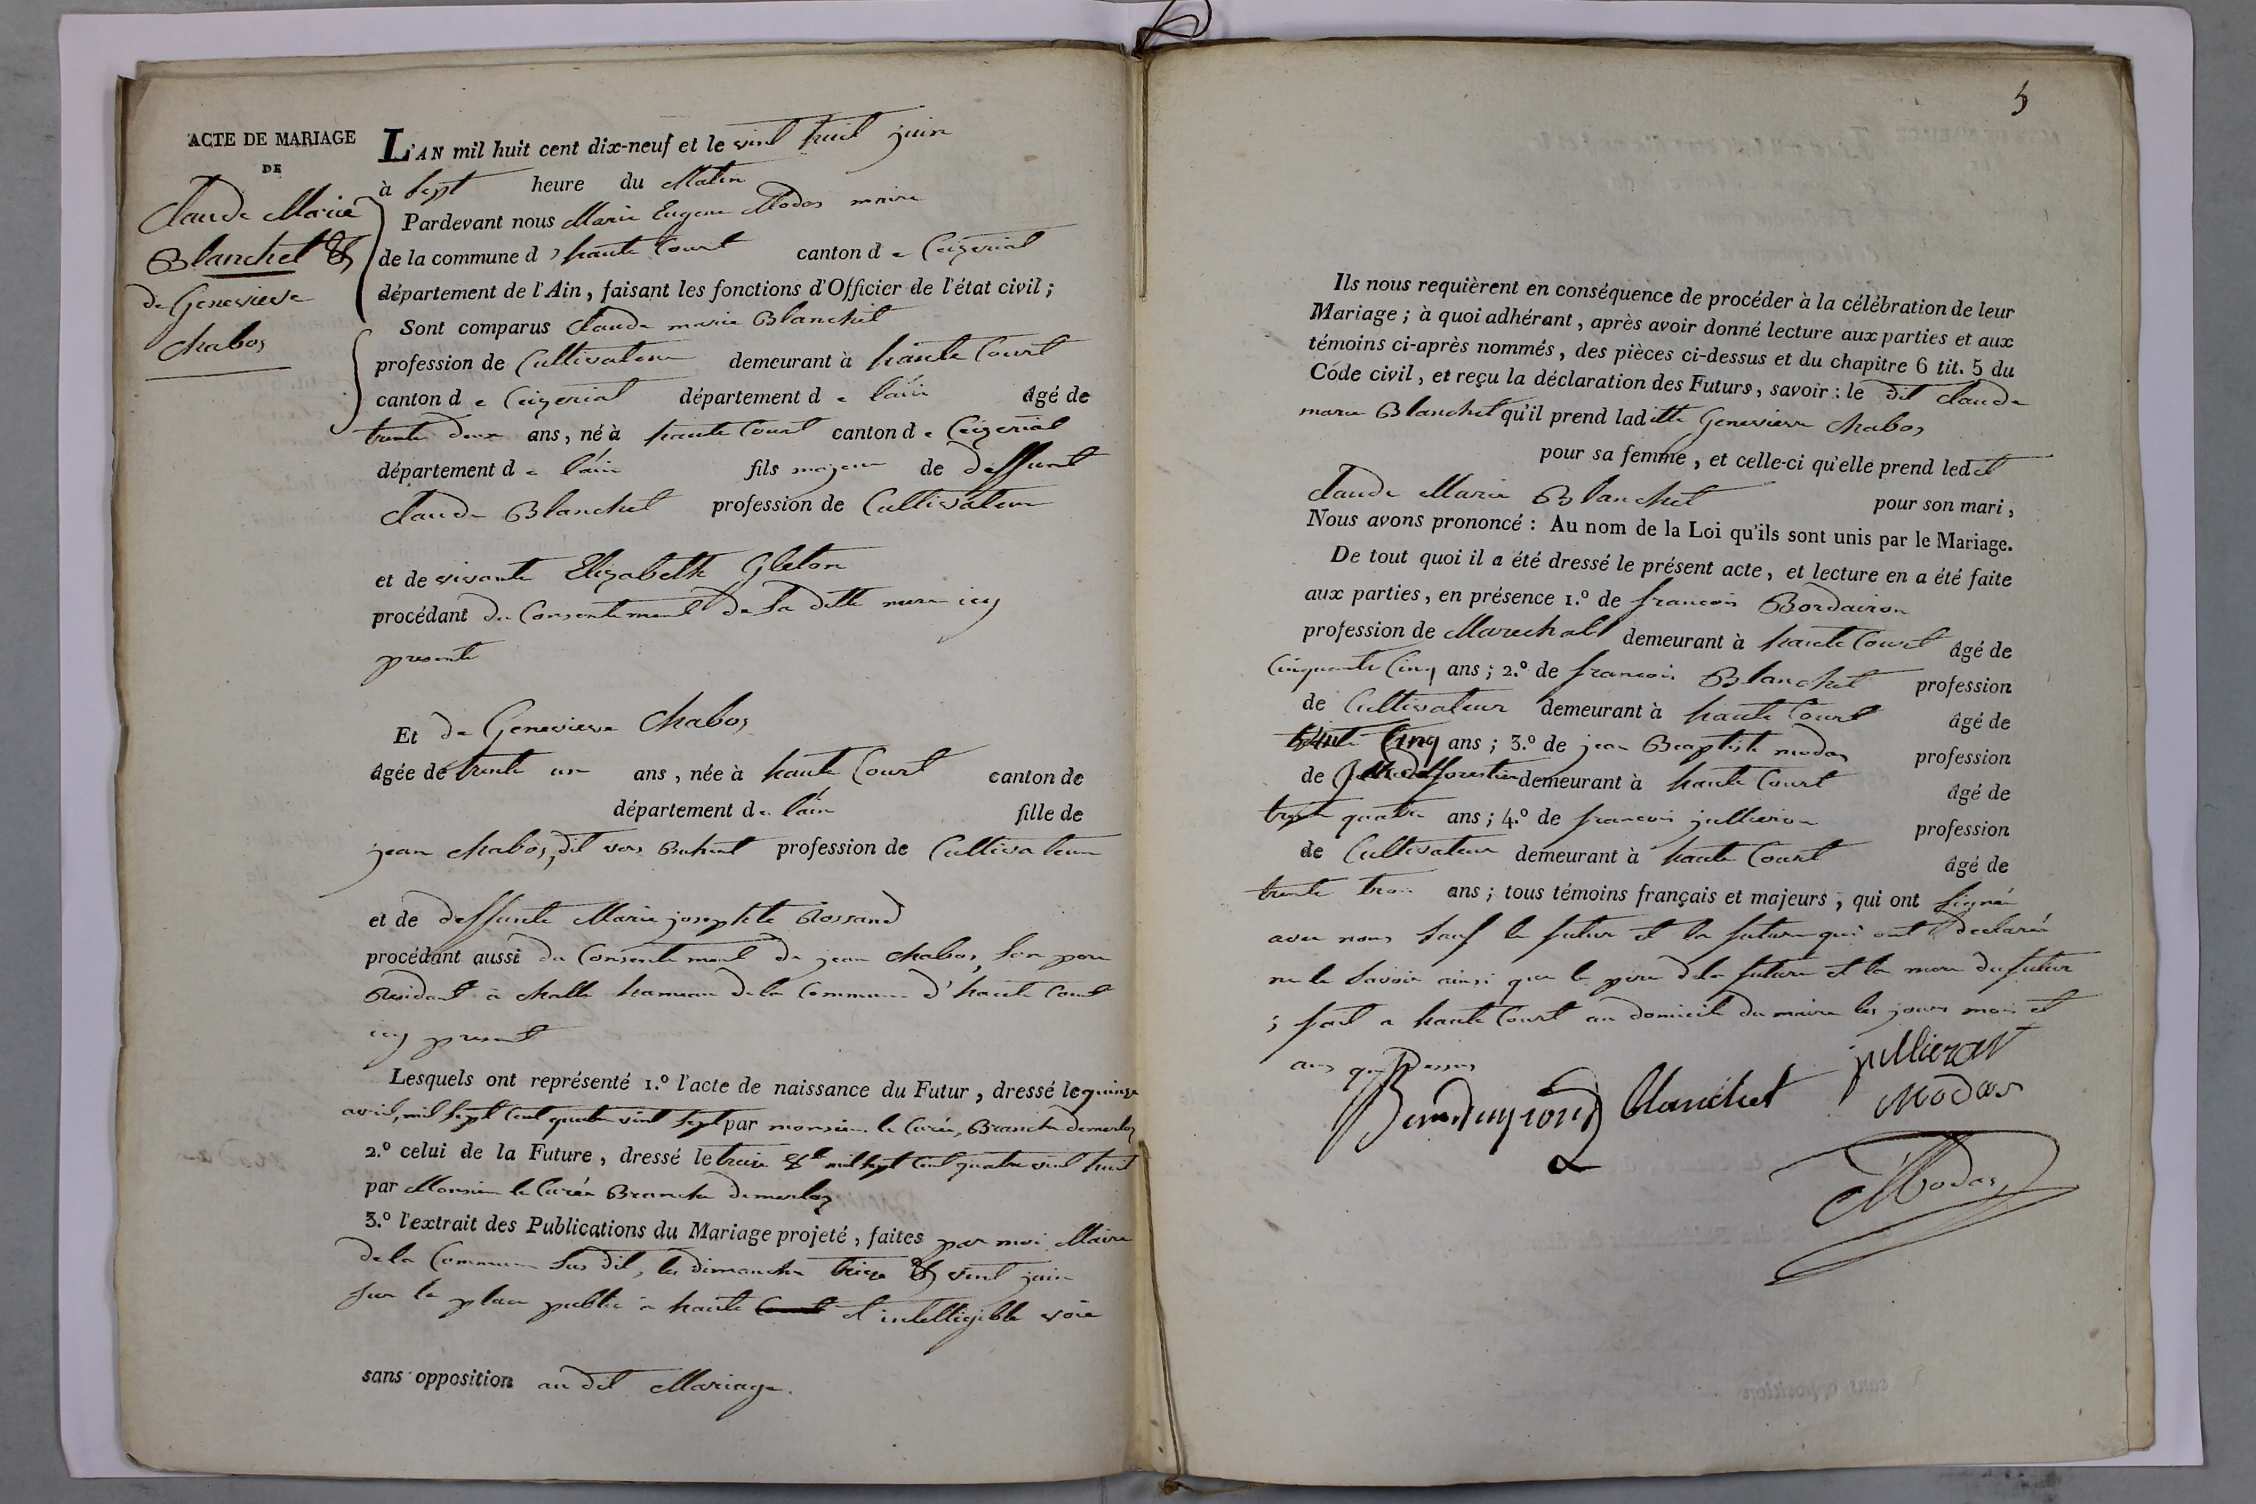 ACTE DE MARIAGE
DE
Claude Marie
Blanchet &
de Genevieve
Chabos
L'AN mil huit cent dix-neuf et le vint huit juin
à Sept heure du Matin
Pardevant nous Marie Eugene Modas maire
de la commune d'haute Court canton de Ceizeriat
département de l'Ain, faisant les fonctions d'Officier de l'état civil;
Sont comparus Claude marie Blanchet
profession de Cultivateur demeurant à haute Court
canton de Ceizeriat département de l'ain âgé de
trente deux ans, né à haute Court canton de Ceizeriat
département de l'ain fils majeur de deffunt
Claude Blanchet profession de Cultivateur
et de vivante Elizabeth Gleton
procédant du Consentement de la ditte mere icy
presente
Et de Genevieve Chabos
âgée de trente un ans, née à haute Court canton de
département de l'ain fille de
jean Chabos, dit vers profession de Cultivateur
et de deffunte Marie josephte Rossand
procédant aussi du Consentement de jean Chabos, Son pere
Residant à Challe hameau de la Commune d'haute Court
icy present
Lesquels ont représenté 1.º l'acte de naissance du Futur, dressé le quinze
avril, mil Sept Cent quatre vint Sept par monsieur le Curée, Branche
2.º celui de la Future, dressé le treize mil Sept Cent quatre vint huit
par Monsieur le Curée Branche
3.º l'extrait des Publications du Mariage projeté, faites par moi Maire
de la Commune Sus dit, les dimanche treize & vint juin
Sur la place public à haute Court et intelligible voie
sans opposition au dit Mariage.
5
Ils nous requièrent en conséquence de procéder à la célébration de leur
Mariage; à quoi adhérant, après avoir donné lecture aux parties et aux
témoins ci-après nommés, des pièces ci-dessus et du chapitre 6 tit. 5 du
Code civil, et reçu la déclaration des Futurs, savoir: le dit Claude
marie Blanchet qu'il prend laditte Genevieve Chabos
pour sa femme, et celle-ci qu'elle prend ledit
Claude Marie Blanchet pour son mari,
Nous avons prononcé: Au nom de la Loi qu'ils sont unis par le Mariage.
De tout quoi il a été dressé le présent acte, et lecture en a été faite
aux parties, en présence 1.º de francois Bordairon
profession de Marechal demeurant à haute Court âgé de
Cinquante Cinq ans; 2.º de francois Blanchet profession
de Cultivateur demeurant à haute Court âgé de
trente Cinq ans; 3.º de jean Baptiste modas profession
de forestier demeurant à haute Court âgé de
trente quatre ans; 4.º de francois jullieron profession
de Cultivateur demeurant à haute Court âgé de
trente trois ans; tous témoins français et majeurs, qui ont Signée
avec nous Sauf le futur et la future qui ont declarée
ne le Savoir ainsi que le pere de la future et la mere du futur
; fait a haute Court au domicile du maire les jours mois et
ans que Dessus
jullieron
Blanchet
Modas
Modas